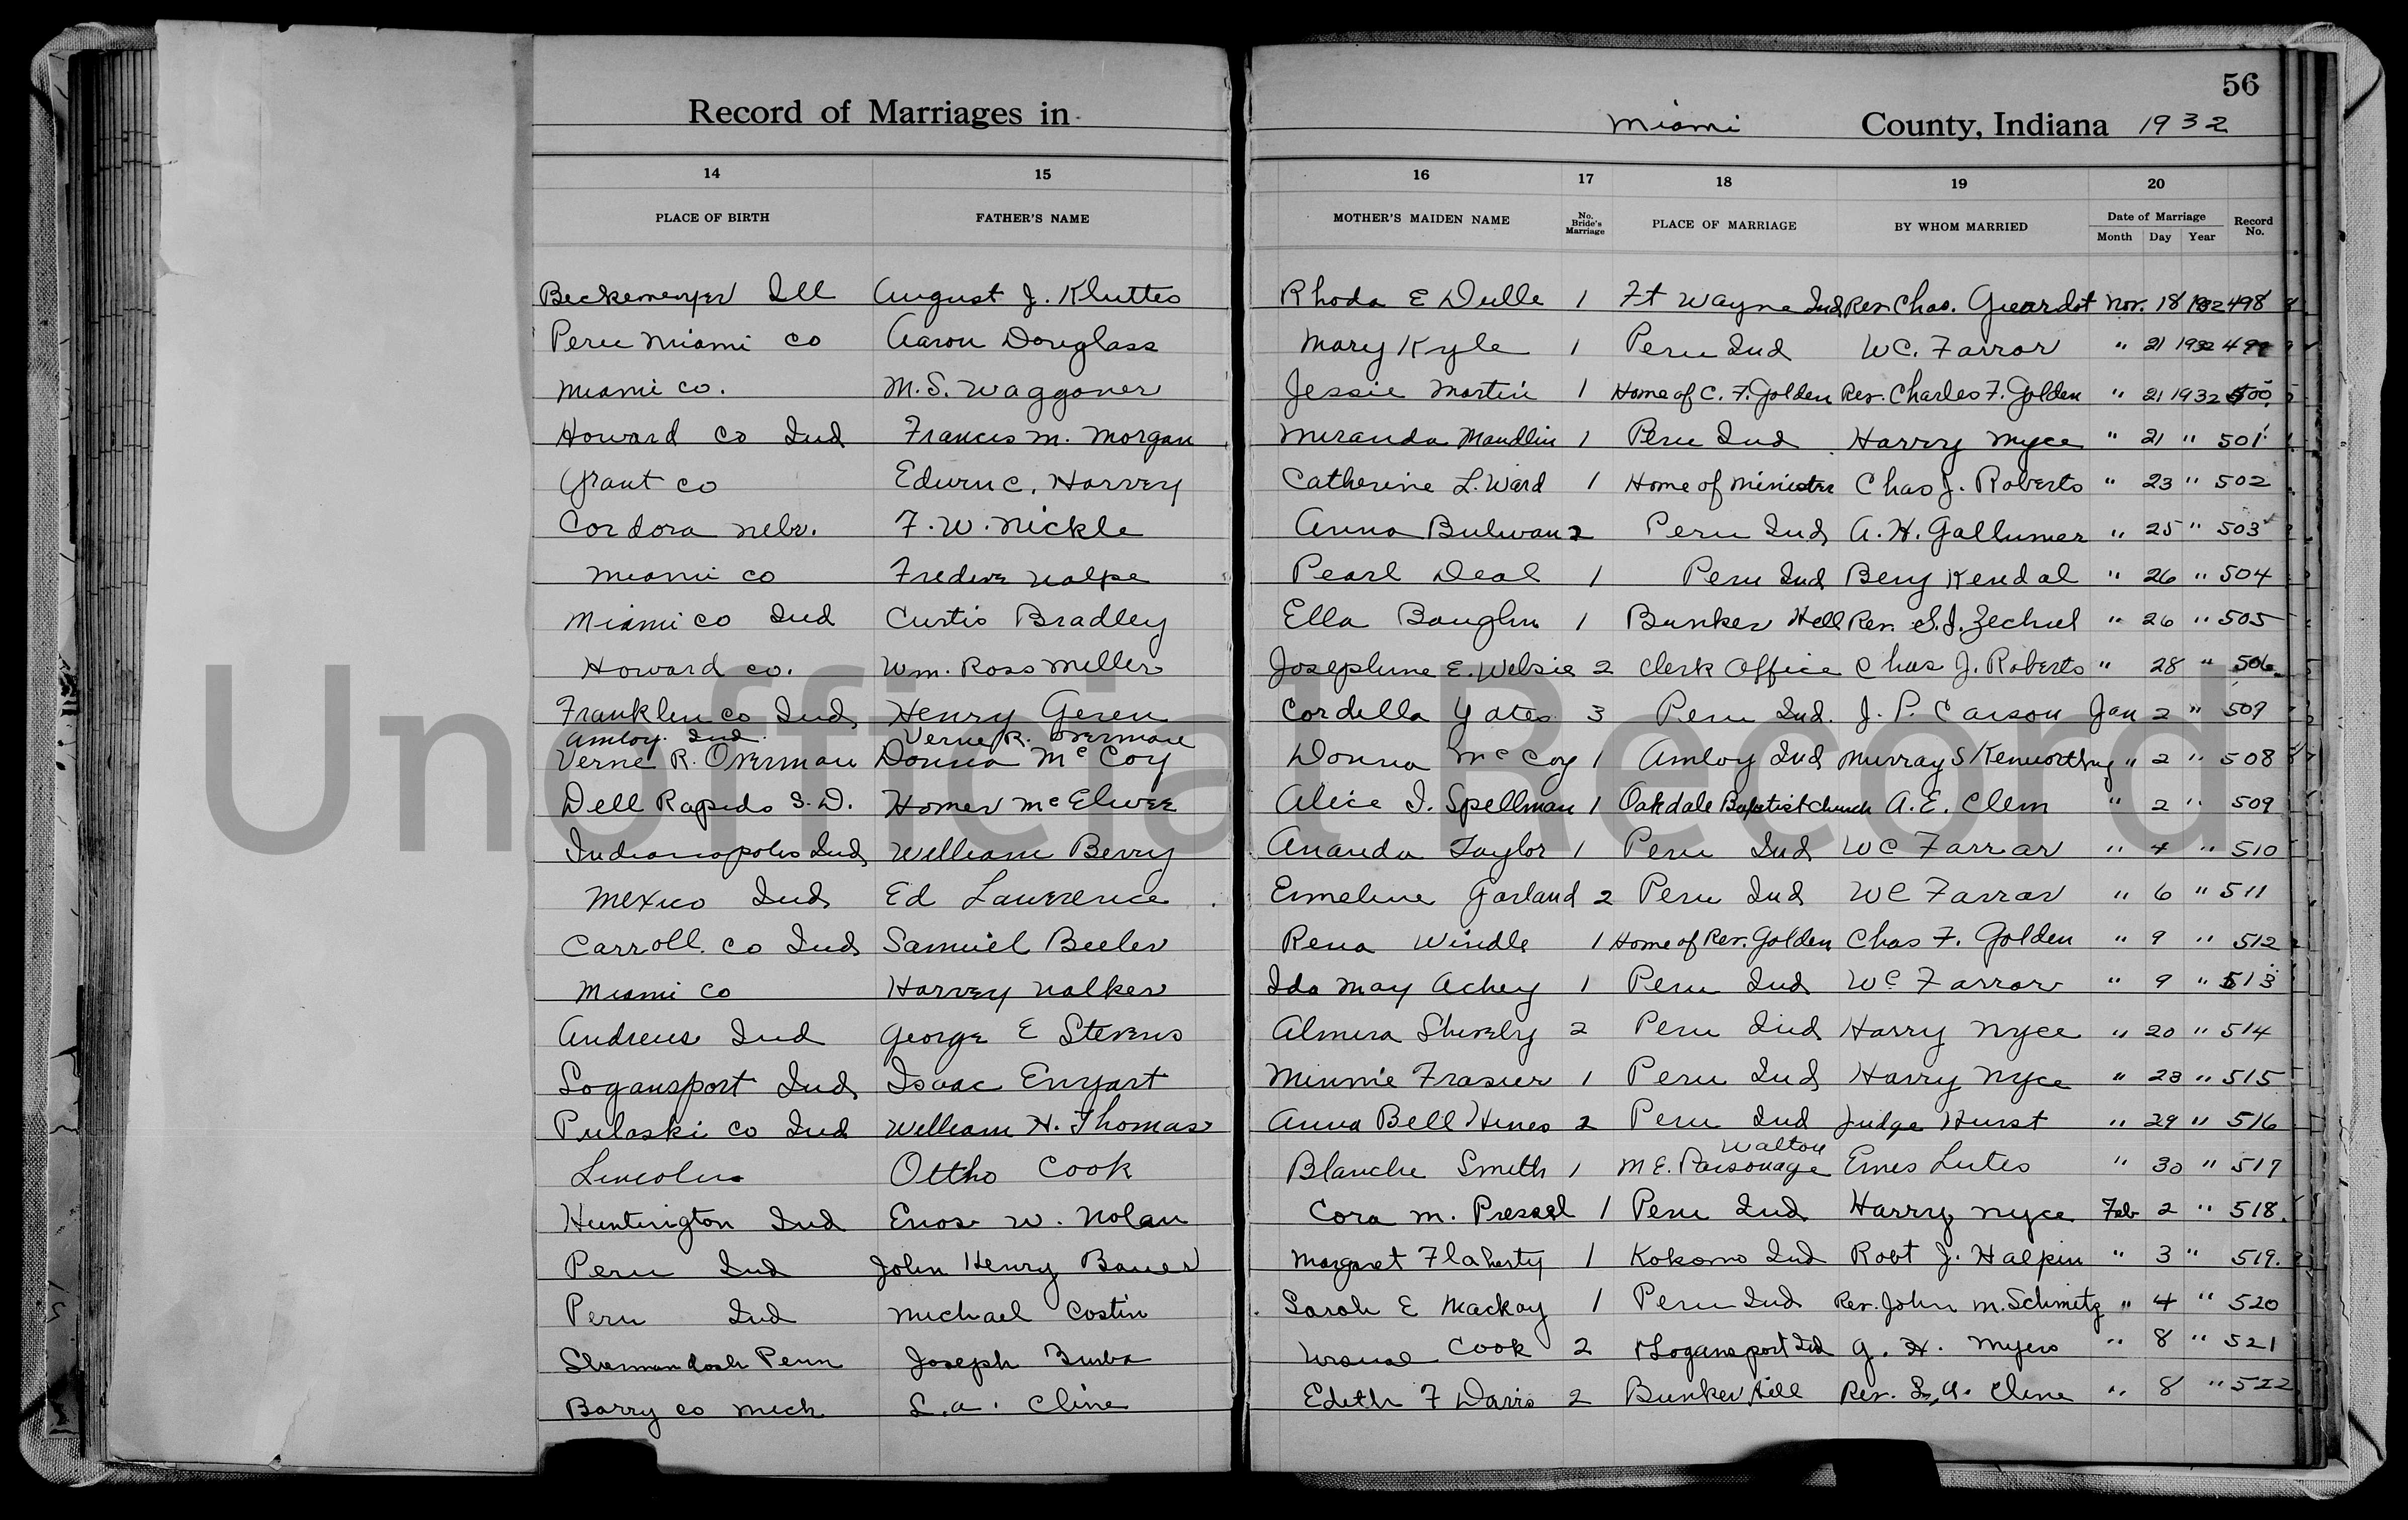 56
Record of Marriages in Miami County, Indiana 1932
14 15 16 17 18 19 20
PLACE OF BIRTH FATHER'S NAME MOTHER'S MAIDEN NAME No. Bride's Marriage PLACE OF MARRIAGE BY WHOM MARRIED Date of Marriage Month Day Year Record No.
Beckemeyer Ill August J. Kluttes Rhoda E Dulle 1 Ft Wayne Ind Rev. Chas. Girardot Nov. 18 1932 498
Peru Miami Co Aaron Douglass Mary Kyle 1 Peru Ind W.C. Farrar " 21 1932 499
Miami Co. M.S. Waggoner Jessie Martin 1 Home of C. F. Golden Rev. Charles F. Golden " 21 1932 500
Howard Co Ind Francis M. Morgan Miranda Maudlin 1 Peru Ind Harry Nyce " 21 " 501
Grant Co Edwin C. Harvey Catherine L. Ward 1 Home of Minister Chas J. Roberts " 23 " 502
Cordora Nebr. F. W. Nickle Anna 2 Peru Ind A. H. Gallumer " 25 " 503
Miami Co Pearl Deal 1 Peru Ind Benj Kendal " 26 " 504
Miami Co Ind Curtis Bradley Ella Baughn 1 Bunker Hill Rev. S. J. Zechiel " 26 " 505
Howard Co. Wm. Ross Miller Josephine E. Welsie 2 Clerk Office Chas J. Roberts " 28 " 506
Franklin Co Ind Henry Geren Cordella Yates 3 Peru Ind. J. P. Carson Jan 2 " 509
Amboy Ind Verne R. Overman
Verne R. Overman Donna McCoy Donna McCoy 1 Amboy Ind Murray S Kenworthy " 2 " 508
Dell Rapids S.D. Homer McElwee Alice I. Spellman 1 Oakdale Baptist Church A. E. Clem " 2 " 509
Indianapolis Ind William Berry Ananda Taylor 1 Peru Ind W C Farrar " 4 " 510
Mexico Ind Ed Lawrence Emeline Garland 2 Peru Ind W C Farrar " 6 " 511
Carroll Co Ind Samuel Beeler Rena Windle 1 Home of Rev. Golden Chas F. Golden " 9 " 512
Miami Co Harvey Walker Ida May Achey 1 Peru Ind W C Farrar " 9 " 513
Andrews Ind George E Stevens Almira Shively 2 Peru Ind Harry Nyce " 20 " 514
Logansport Ind Isaac Enyart Minnie Frasier 1 Peru Ind Harry Nyce " 23 " 515
Pulaski Co Ind William H. Thomas Anna Bell Hines 2 Peru Ind Judge Hurst " 29 " 516
Lincoln Ottho Cook Blanche Smith 1 M E. Parsonage Walton Ernes Lutes " 30 " 517
Huntington Ind Enos W. Nolan Cora M. Pressel 1 Peru Ind Harry Nyce Feb 2 " 518
Peru Ind John Henry Bauer Margaret Flaherty 1 Kokomo Ind Robt J. Halpin " 3 " 519
Peru Ind Michael Costin Sarah E Mackay 1 Peru Ind Rev. John M. Schmitz " 4 " 520
Penn Joseph Burba Cook 2 Logansport Ind G. H. Myers " 8 " 521
Barry Co Mich L. A. Cline Edith F Davis 2 Bunker Hill Rev. L. A. Cline " 8 " 522
Unofficial Record